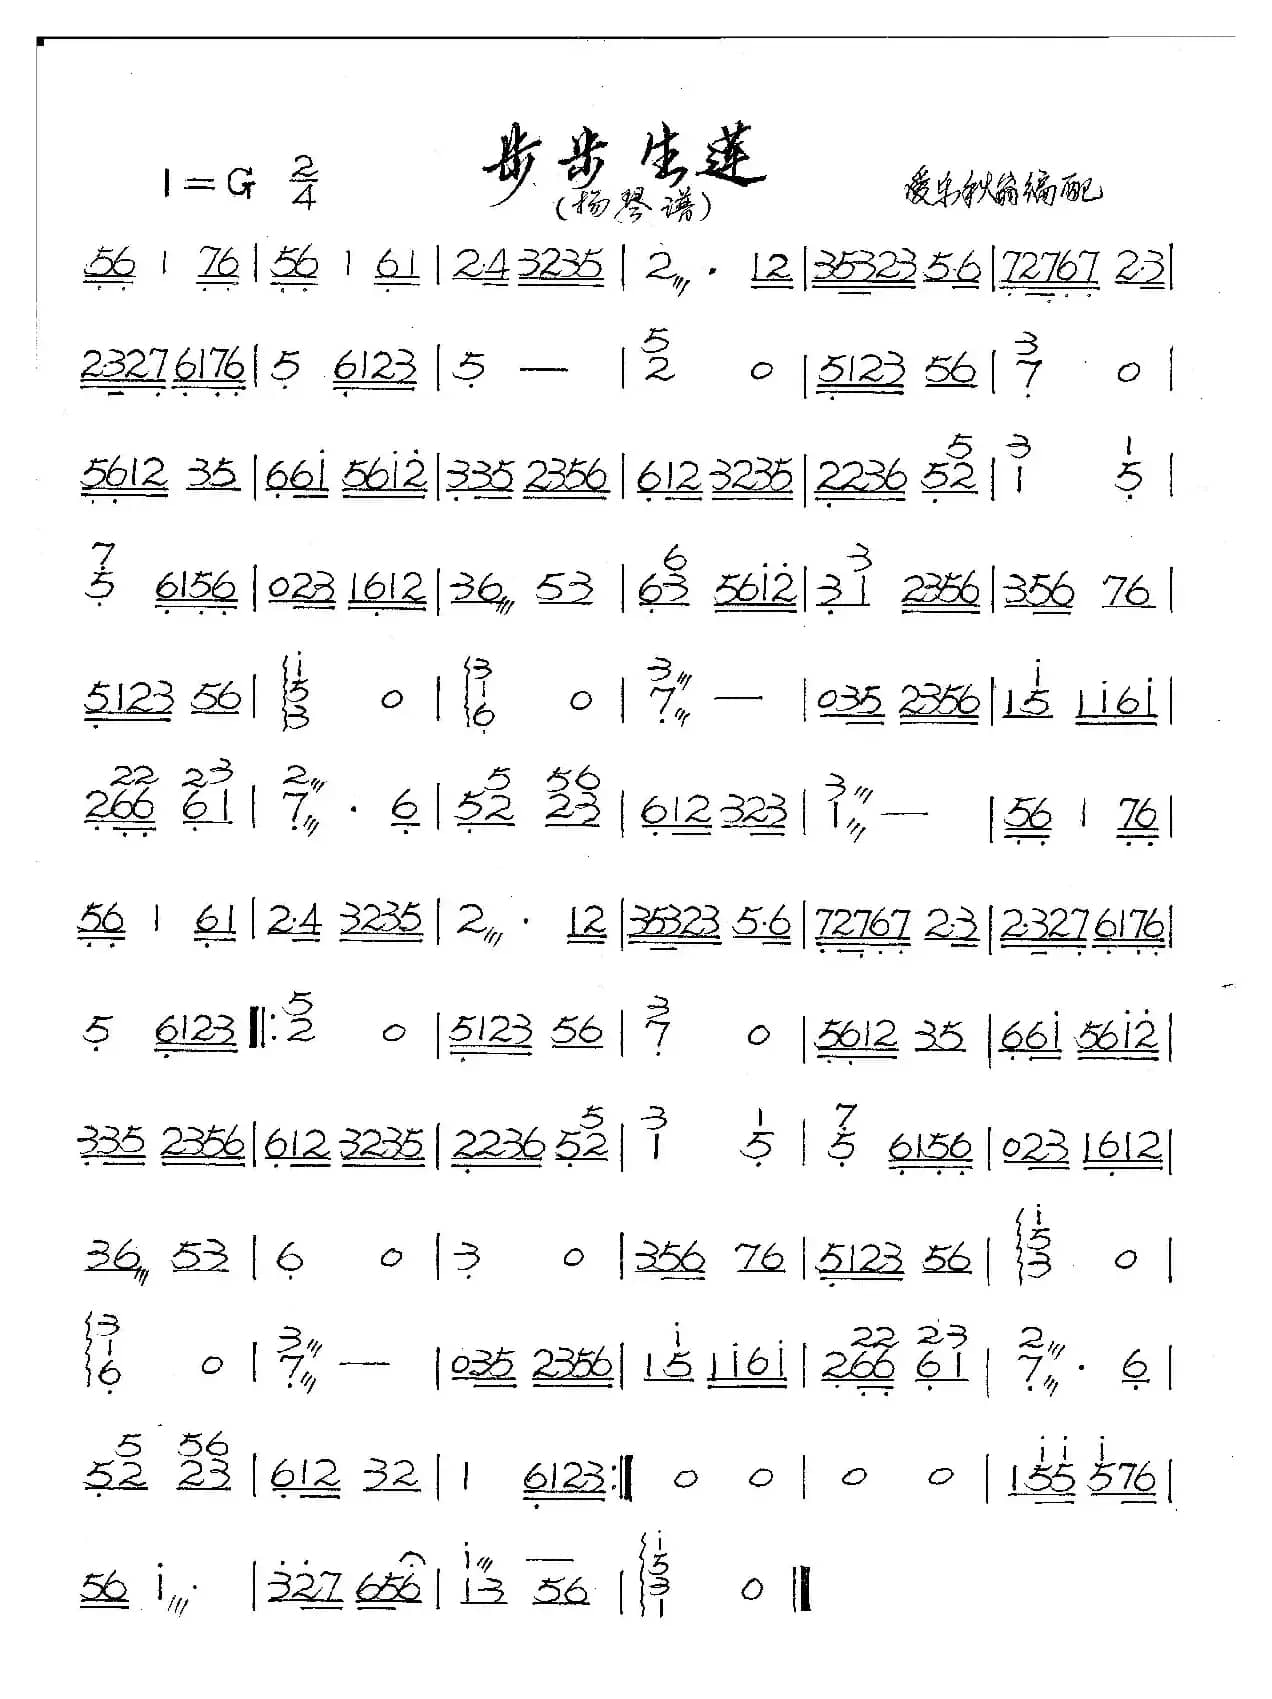 步步生莲
1=G 2/4
(扬琴谱)
爱乐秋翁编配
56 1 76 | 56 1 61 | 2·4 3235 | 2 · 12 | 35323 5·6 | 72767 2·3 |
2327 6176 | 5 6123 | 5 — | 5 2 0 | 5123 56 | 3 7 0 |
5612 35 | 661 5612 | 335 2356 | 612 3235 | 2236 5 52 | 3 1 1 5 |
7 5 6156 | 023 1612 | 36 53 | 6 63 5612 | 3 31 2356 | 356 76 |
5123 56 | 1 5 3 0 | 3 1 6 0 | 3 7 — | 035 2356 | 1 15 1161 |
22 266 23 61 | 2 7 · 6 | 5 52 56 23 | 612 323 | 3 1 — | 56 1 76 |
56 1 61 | 2·4 3235 | 2 · 12 | 35323 5·6 | 72767 2·3 | 2·327 6176 |
5 6123 ‖: 5 2 0 | 5123 56 | 3 7 0 | 5612 35 | 661 5612 |
335 2356 | 612 3235 | 2236 5 52 | 3 1 1 5 | 7 5 6156 | 023 1612 |
36 53 | 6 0 | 3 0 | 356 76 | 5123 56 | 1 5 3 0 |
3 1 6 0 | 3 7 — | 035 2356 | 1 15 1161 | 22 266 23 61 | 2 7 · 6 |
5 52 56 23 | 612 32 | 1 6123 :‖ 0 0 | 0 0 | 11 155 1 576 |
56 1 · | 327 656 | 1 13 56 | 1 5 3 1 0 ‖